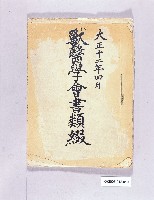 大正十二年四月
獣醫學會書類綴